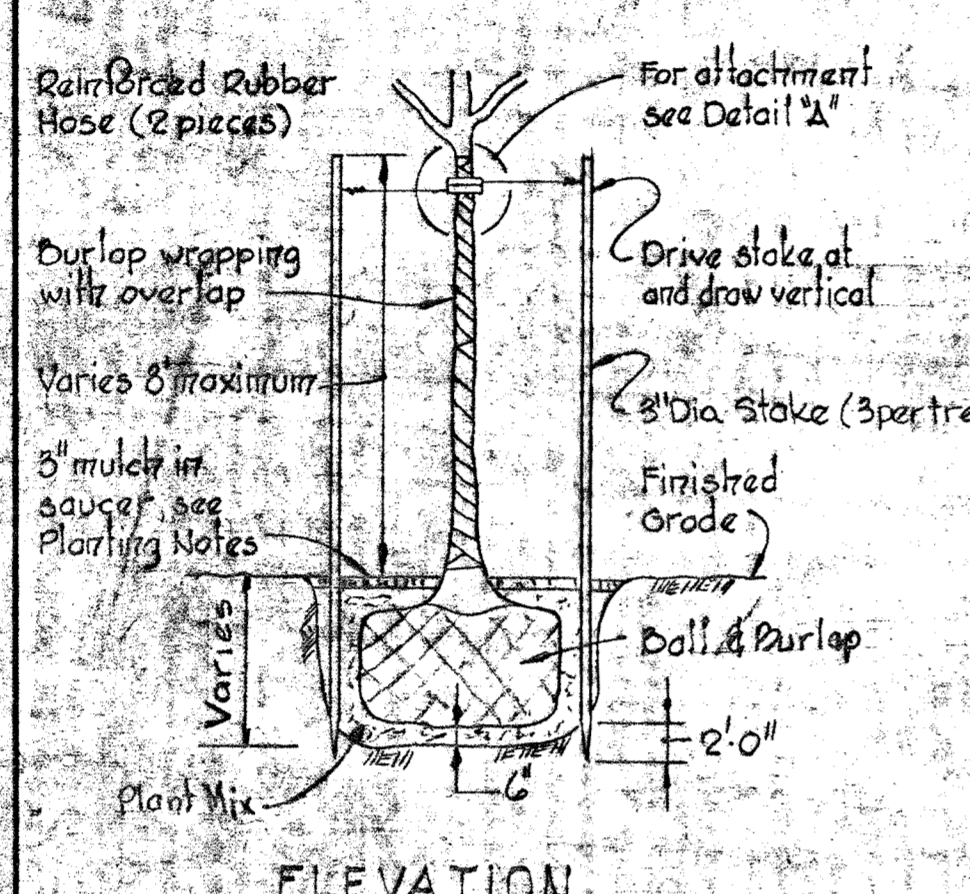 Reinforced Rubber
Hose (2 pieces)
For attachment
see Detail "A"
Burlap wrapping
with overlap
Drive stake at
and draw vertical
Varies 8' maximum
3" Dia Stake (3 per tre
3" mulch in
saucer, see
Planting Notes
Finished
Grade
Varies
Ball & Burlap
2'-0"
Plant Mix
6"
ELEVATION